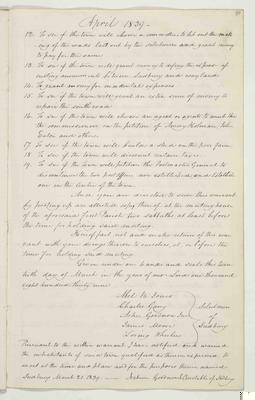 April 1839
12. To see if the town will choose a committee to let out the making of the roads laid out by the selectmen and grant money to pay for the same
13. To see if the town will grant money to defray the expense of setting monuments between Sudbury and Wayland
14. To grant money for incidental expenses
15. To see if the town will grant an extra sum of money to repair the south road
16. To see if the town will choose an agent or agents to meet the commissioners on the petition of Loring Holman, John Eaton and others
17. To see if the town will build a shed on the poor farm
18. To see if the town will discount certain taxes
19. To see if the town will petition the Postmaster General to discontinue the two post offices now established and establish one in the Center of the town
And you are directed to serve this warrant
by posting up an attested copy thereof at the meeting house
of the aforesaid first Parish two sabbaths at least before
the time for holding said meeting
Hereof fail not and make return of this warrant
with your doings thereon to ourselves at or before the
time for holding said meeting
Given under our hands and seals this
day of March in the year of our Lord one thousand
eight hundred thirty nine
Charles Gerry
Asher Goodnow Jun
James Moore
Loring Wheeler
Selectmen
of
Sudbury
Pursuant to the within warrant I have notified and warned
the inhabitants of said town qualified as therein expressed to
meet at the time and place and for the purposes therein named
Sudbury March 1839 Constable of Sudbury